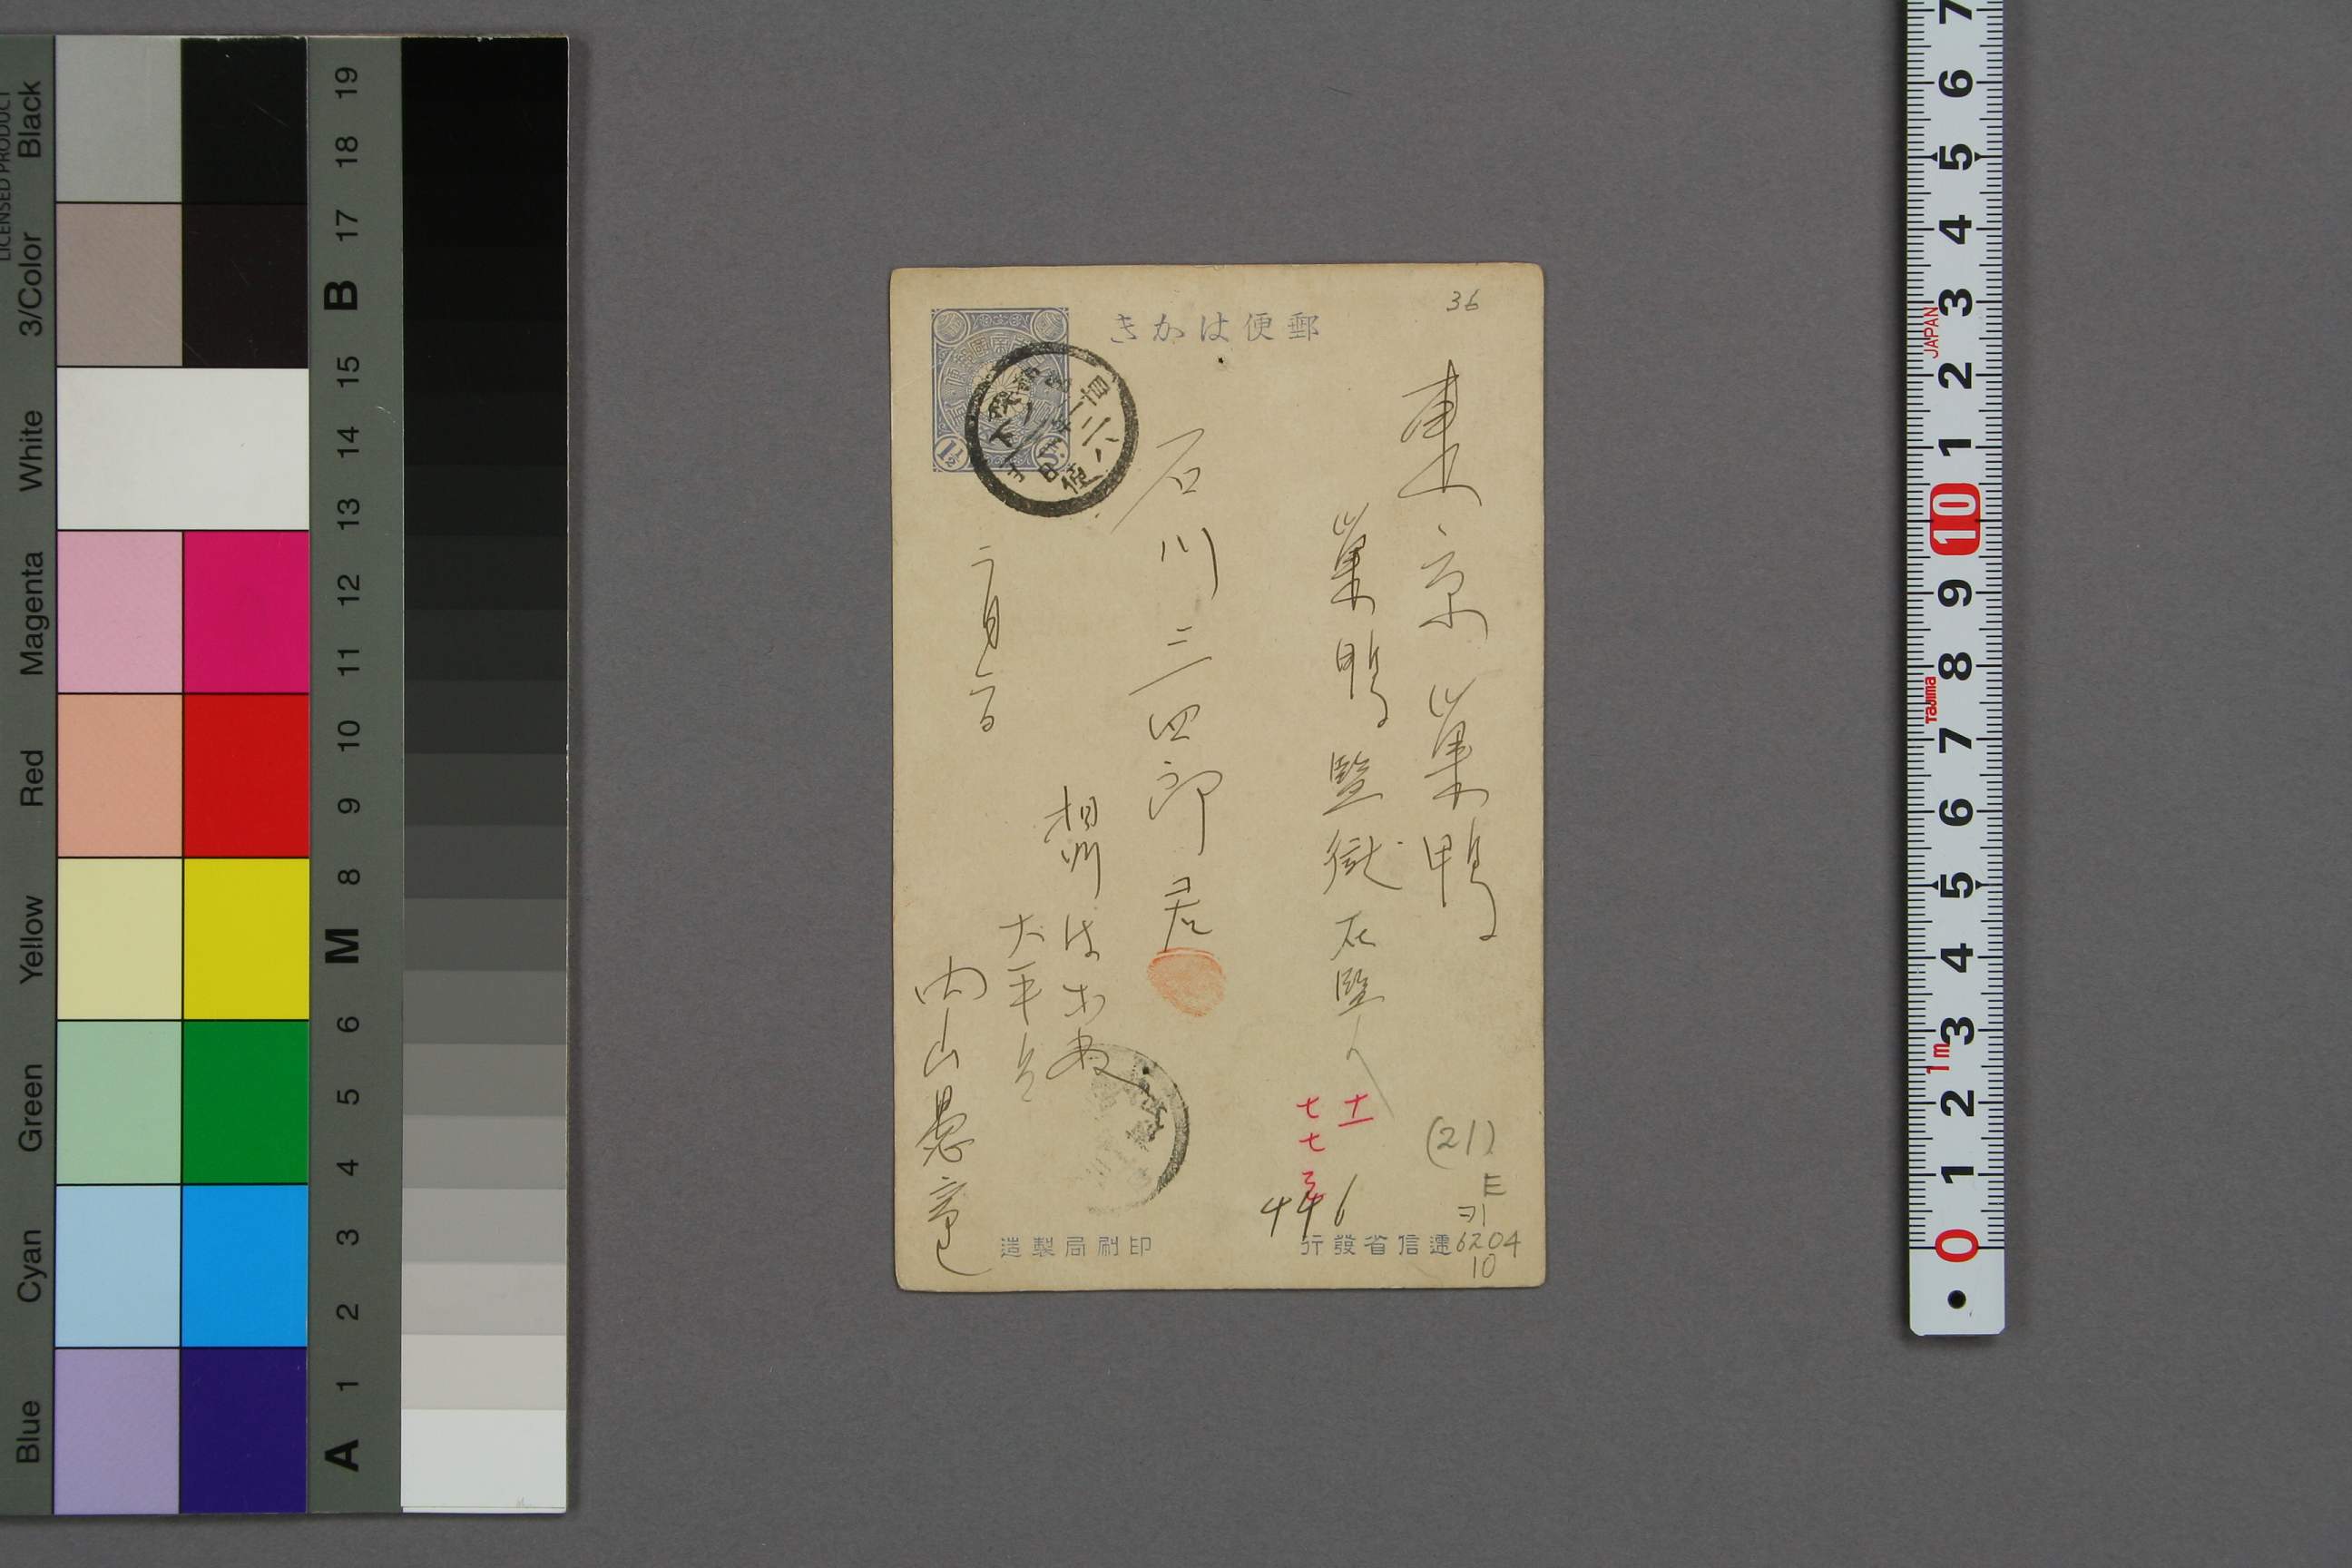 郵便はがき
36
東京巣鴨
巣鴨監獄在監人
石川三四郎君
二月六日
相州はこね
大平台
内山愚童
十一
七七三
446
(21)
E
ヨ1
6204
10
逓信省發行
印刷局製造
四十一年
二
便
下
1½
Black
3/Color
White
Magenta
Red
Yellow
Green
Cyan
Blue
LICENSED PRODUCT
19
18
17
B
15
14
13
12
11
10
9
8
M
6
5
4
3
2
1
A
7
6
5
4
3
2
1
10
9
8
7
6
5
4
3
2
1
0
JAPAN
Tajima
1m